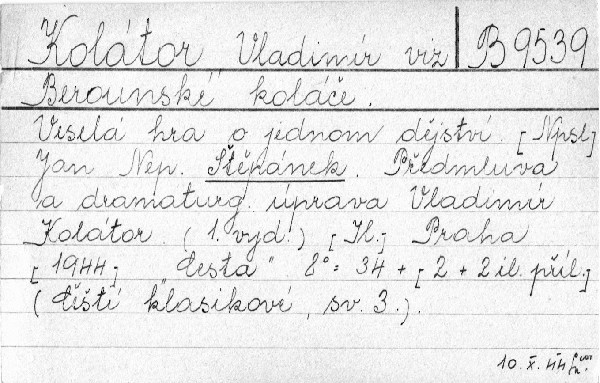 Kolátor Vladimír viz B 9539
Berounské koláče.
Veselá hra o jednom dějství. [Npsl]
Jan Nep. Štěpánek. Předmluva
a dramaturg. úprava Vladimír
Kolátor. (1. vyd.) [Il.] Praha
[1944], "Cesta" 8°: 34 + [2 + 2 il. příl.]
(Čeští klasikové, sv. 3.).
10. X. 44